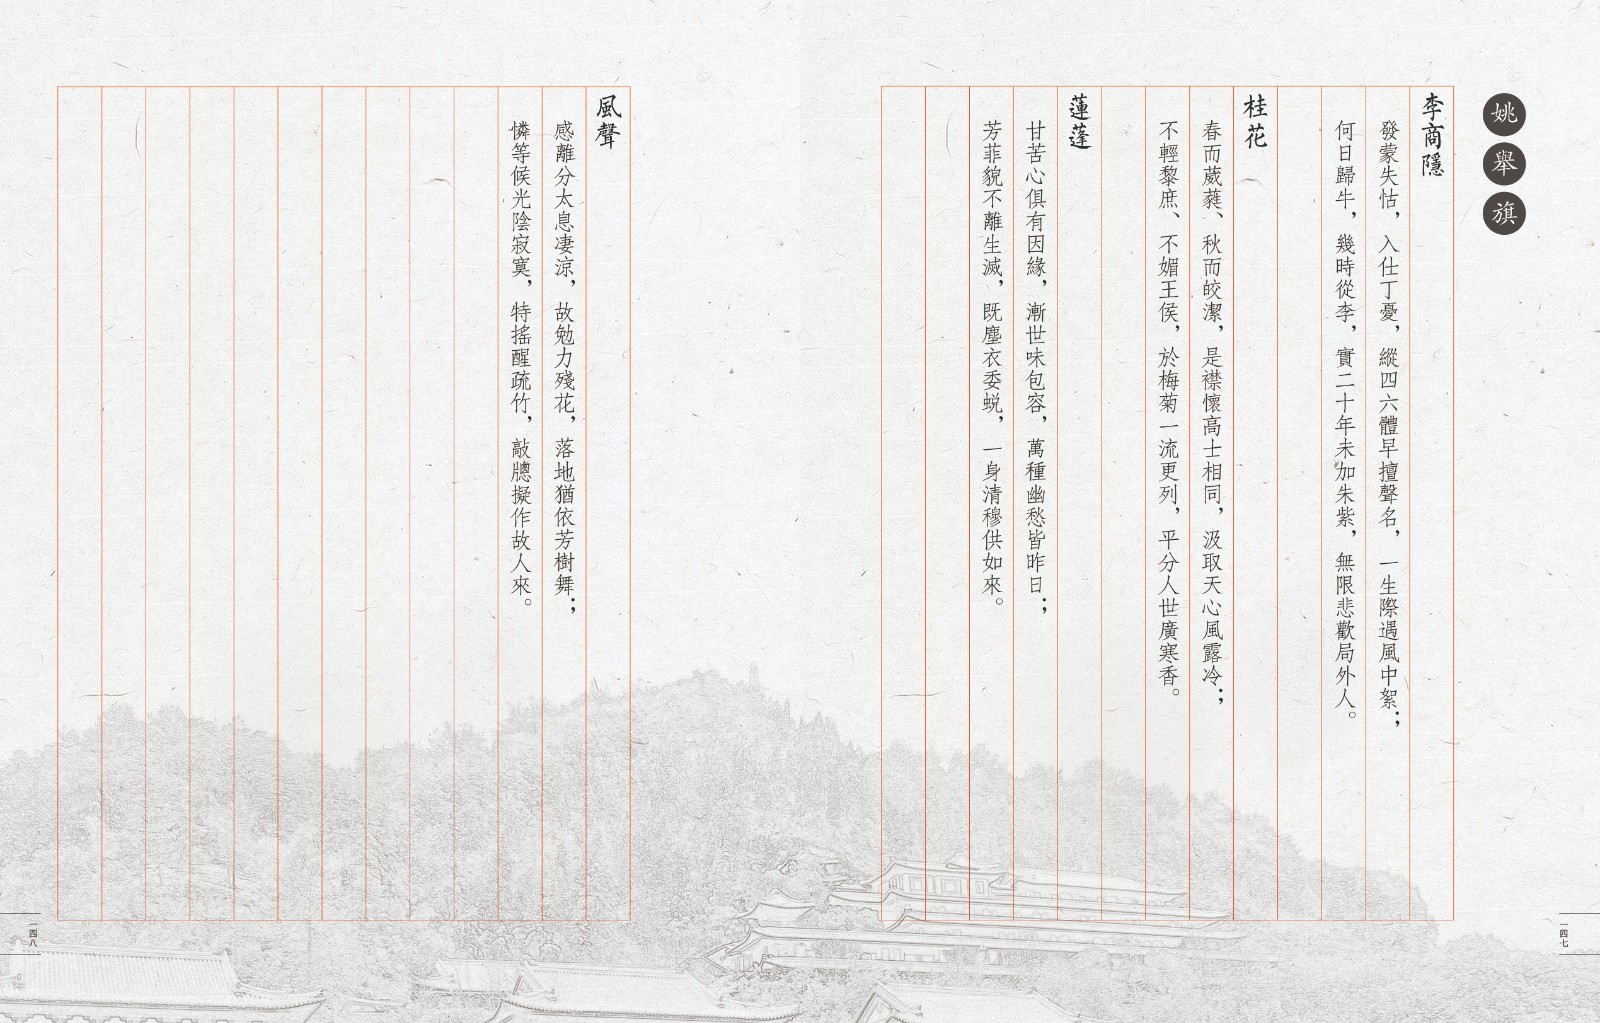 姚舉旗
李商隱
發蒙失怙，入仕丁憂，縱四六體早擅聲名，一生際遇風中絮；
何日歸牛，幾時從李，實二十年未加朱紫，無限悲歡局外人。
桂花
春而葳蕤、秋而皎潔，是襟懷高士相同，汲取天心風露冷；
不輕黎庶、不媚王侯，於梅菊一流更列，平分人世廣寒香。
蓮蓬
甘苦心俱有因緣，漸世味包容，萬種幽愁皆昨日；
芳菲貌不離生滅，既塵衣委蜕，一身清穆供如來。
一四七
風聲
感離分太息凄涼，故勉力殘花，落地猶依芳樹舞；
憐等候光陰寂寞，特搖醒疏竹，敲牕擬作故人來。
一四八